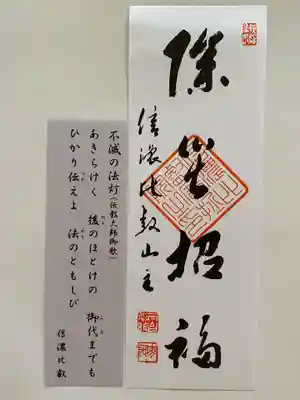 除災招福
信濃比叡山主
不滅の法灯(伝教大師御歌)
あきらけく 後のほとけの 御代までも
ひかり伝えよ 法のともしび
信濃比叡